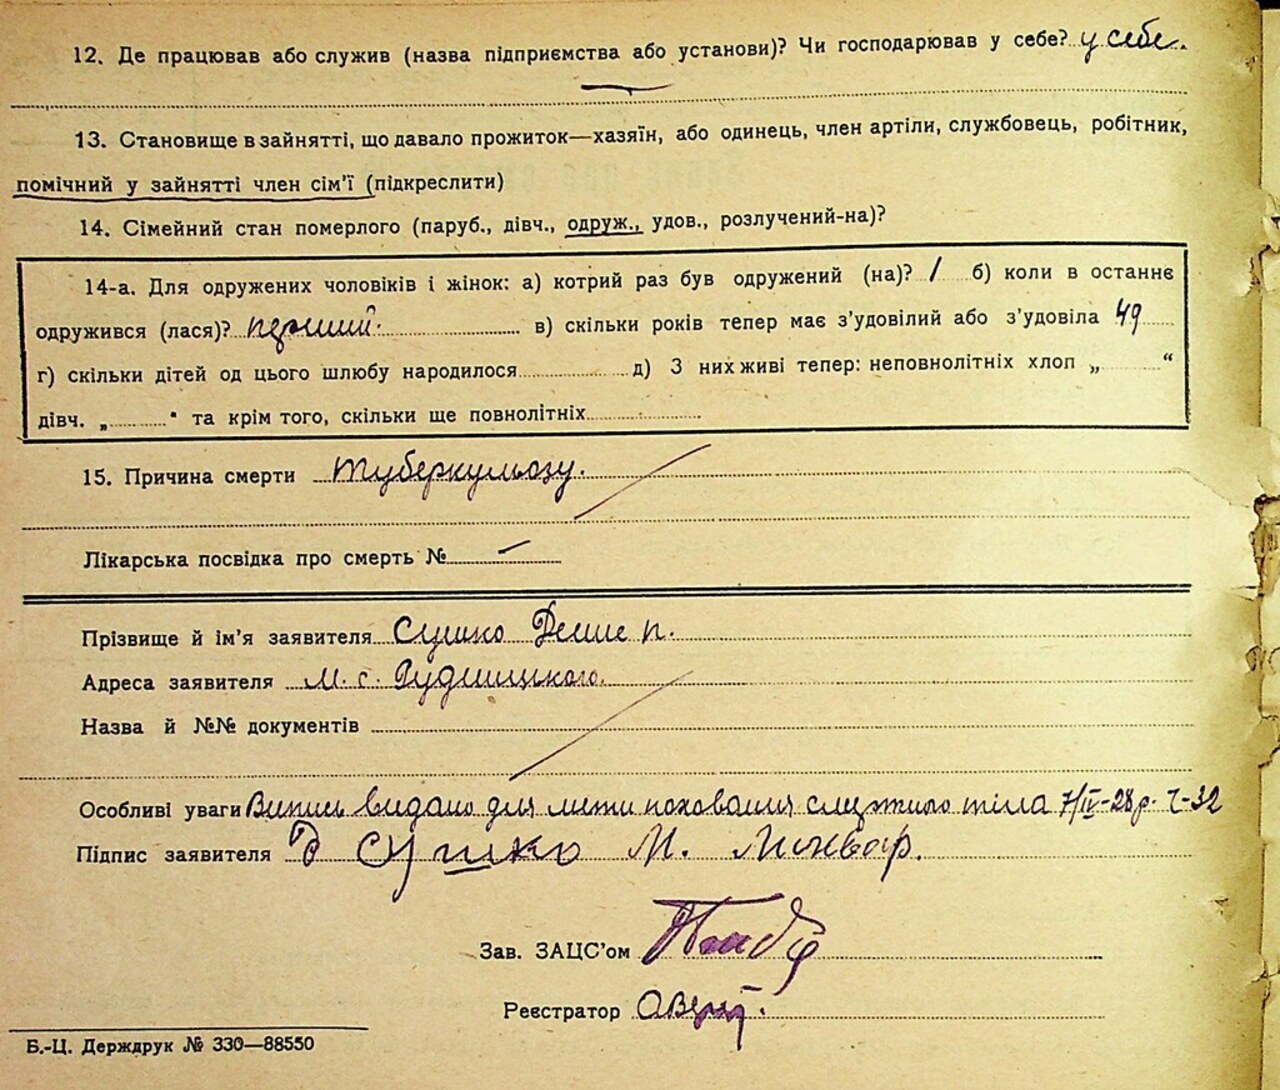 12. Де працював або служив (назва підприємства або установи)? Чи господарював у себе? у себе.
13. Становище в зайнятті, що давало прожиток—хазяїн, або одинець, член артіли, службовець, робітник,
помічний у зайнятті член сім'ї (підкреслити)
14. Сімейний стан померлого (паруб., дівч., одруж., удов., розлучений-на)?
14-а. Для одружених чоловіків і жінок: а) котрий раз був одружений (на)? / б) коли в останнє
одружився (лася)? перший. в) скільки років тепер має з'удовілий або з'удовіла 49
г) скільки дітей од цього шлюбу народилося д) З них живі тепер: неповнолітніх хлоп „ “
дівч. „ " та крім того, скільки ще повнолітніх
15. Причина смерти туберкульозу.
Лікарська посвідка про смерть № —
Прізвище й ім'я заявителя Сушко
Адреса заявителя м. с.
Назва й №№ документів
Особливі уваги Випись видано для мети поховання тіла 7/IV-28 р. ч-32
Підпис заявителя Сушко М.
Зав. ЗАЦС'ом
Реєстратор
Б.-Ц. Держдрук № 330—88550